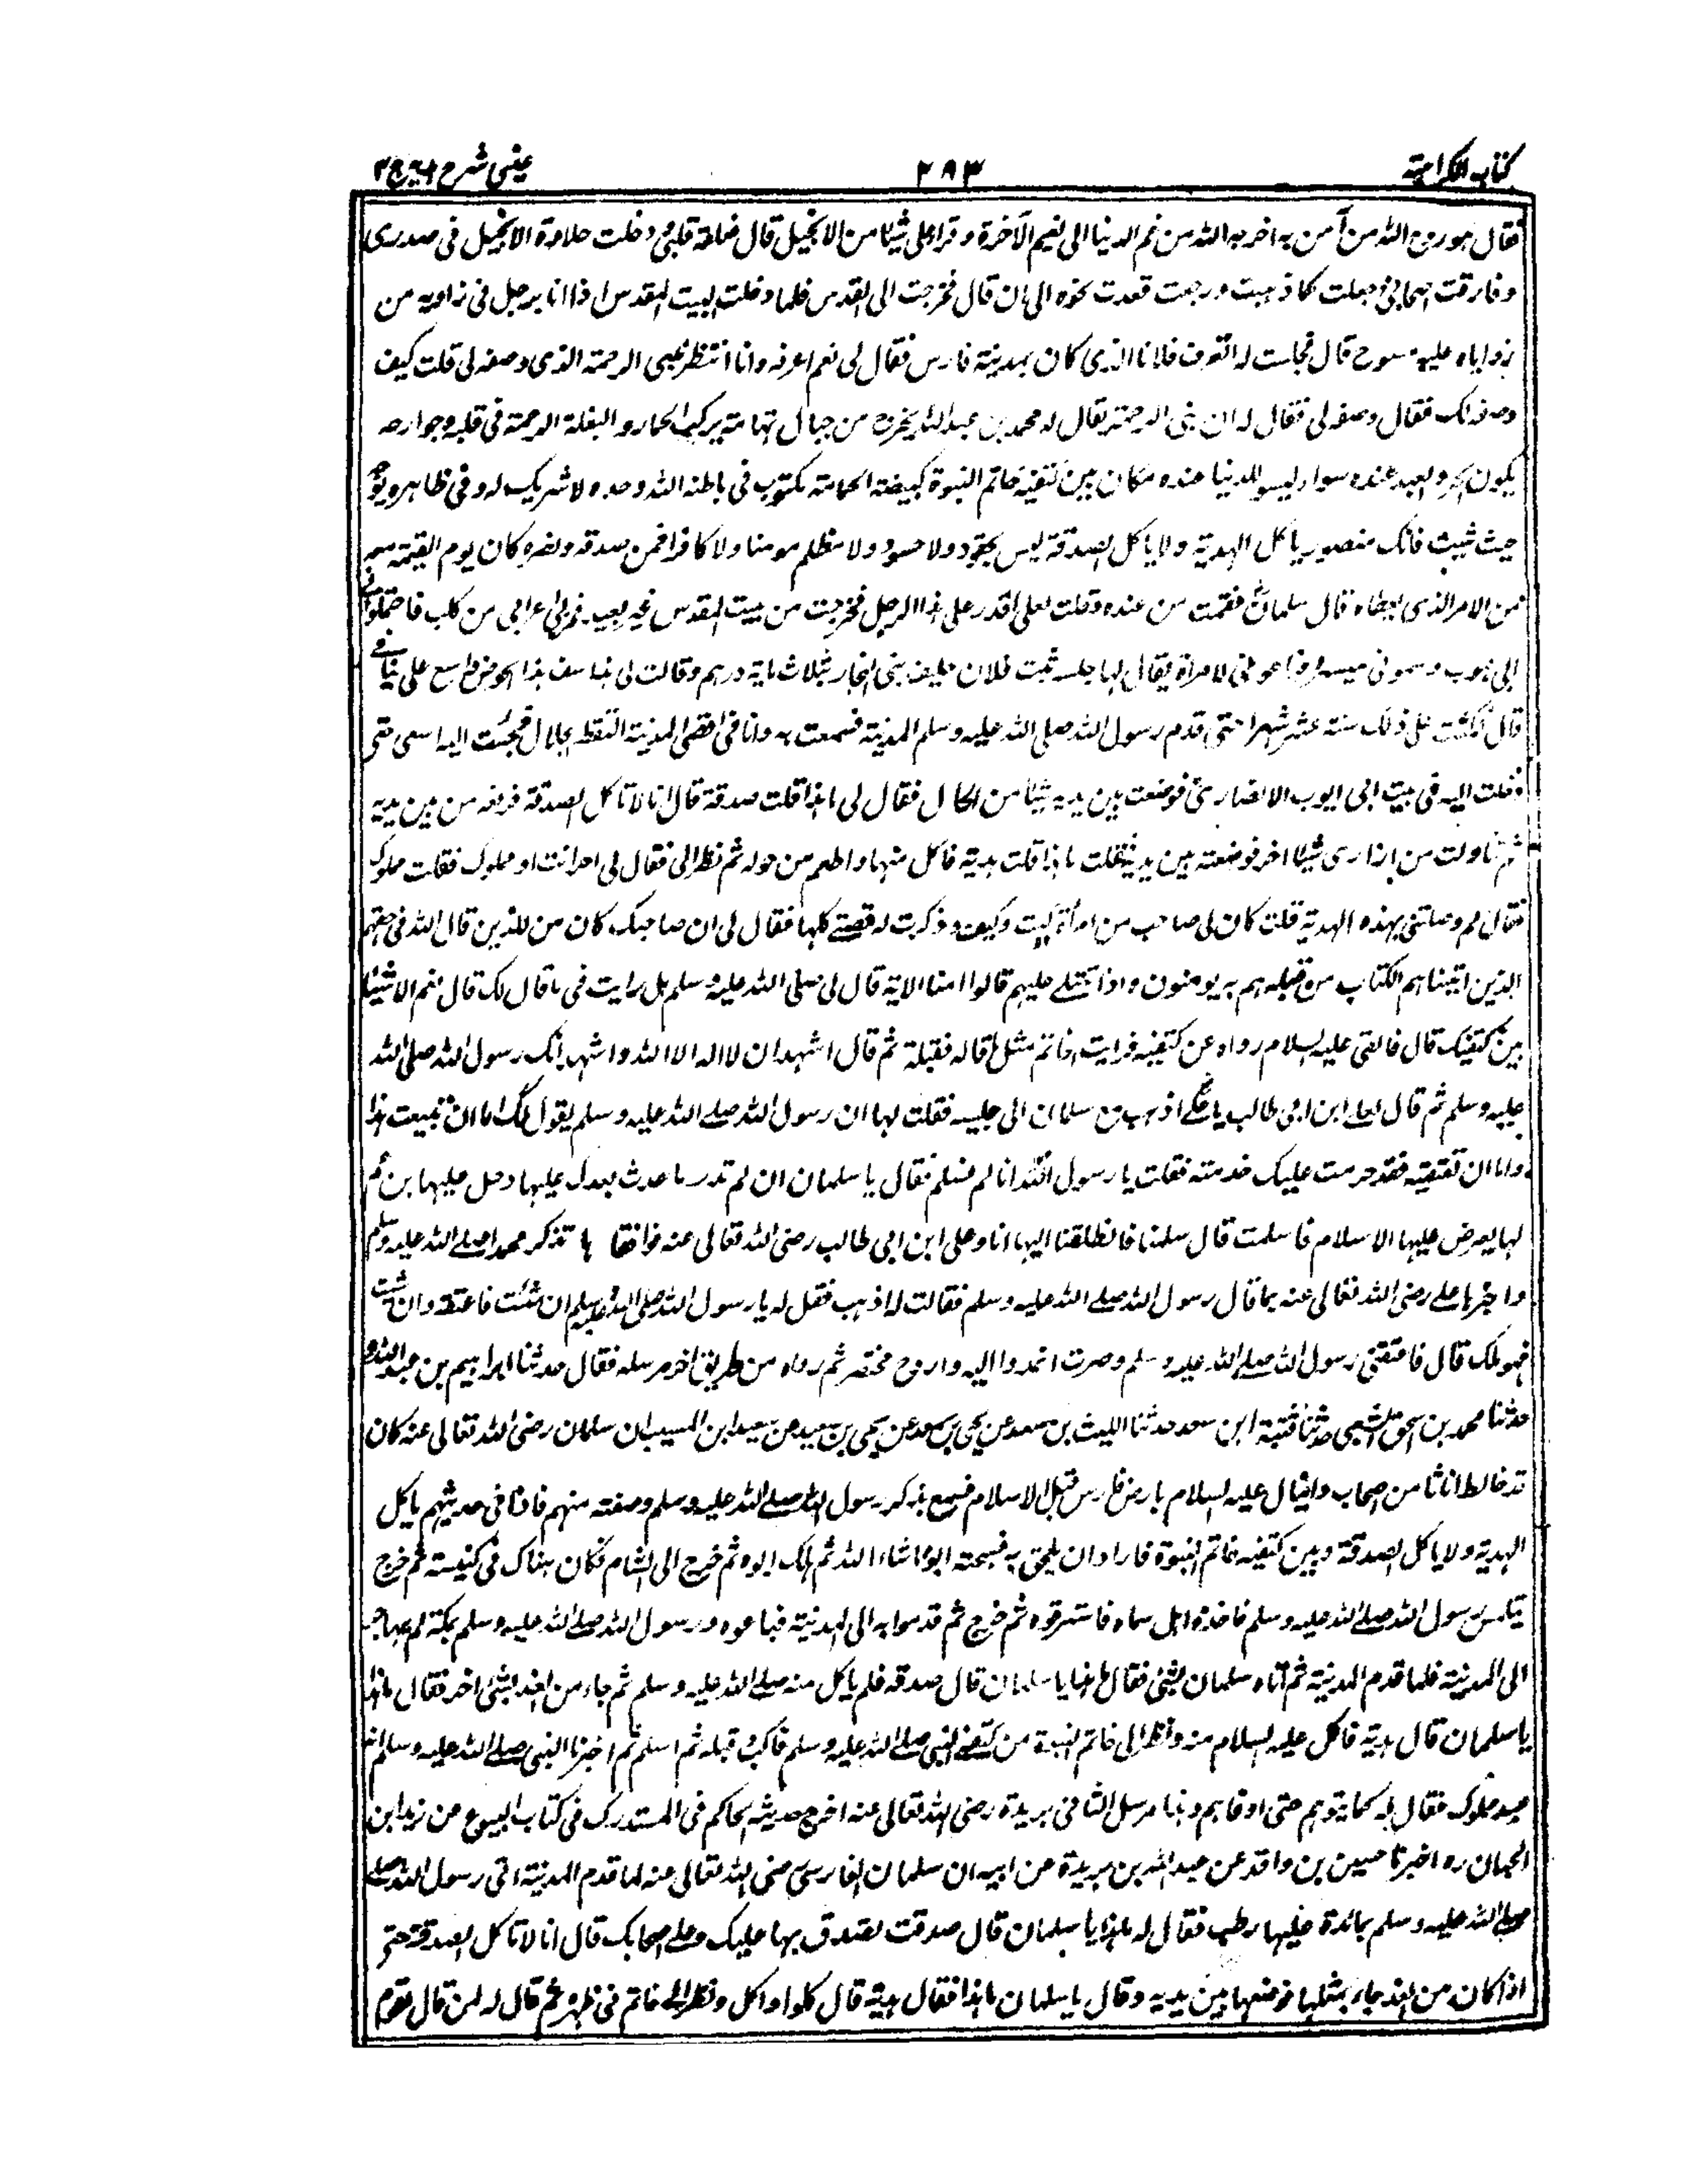 كتاب الكراهية ٢٨٣ عيني شرح هداية ج ٣
فقال هو روح الله من آمن به اخرجه الله من غم الدنيا الى نعيم الآخرة و قرا علي شيئا من الانجيل قال فعلقه قلبي و دخلت حلاوة الانجيل في صدري
و فارقت اصحابي و جعلت كلما ذهبت و رجعت قعدت نحوه الى ان قال فخرجت الى القدس فلما دخلت البيت المقدس اذا انا برجل في زاوية من
زواياه عليه مسوح قال فجلست له اتعرف فلانا الذي كان بمدينة فارس فقال لي نعم اعرفه و انا انتظر نبي الرحمة الذي وصفه لي قلت كيف
وصفه لك فقال وصفه لي فقال له ان نبي الرحمة يقال له محمد بن عبد الله يخرج من جبال تهامة يركب الحمار و البغلة الرحمة في قلبه و جوارحه
يكون الحر و العبد عنده سواء ليس للدنيا عنده مكان بين كتفيه خاتم النبوة كبيضة الحمامة مكتوب في باطنه الله وحده لا شريك له و في ظاهره توجه
حيث شيت فانك منصور ياكل الهدية و لا ياكل الصدقة ليس بحقود و لا حسود و لا يظلم مومنا و لا كافرا فمن صدقه و نصره كان يوم القيمة معه
من الامر الذي يعطاه قال سلمان فقمت من عنده و قلت لعلي اقدر على هذا الرجل فخرجت من بيت المقدس غير بعيد فمر بي اعرابي من كلب فاحتملوني
الى يثرب و سموني ميسرة فباعوني لامراة يقال لها خليسة بنت فلان حليف بني النجار بثلاث ماية درهم و قالت لي
قال فمكثت على ذلك ستة عشر شهرا حتى قدم رسول الله صلى الله عليه و سلم المدينة فسمعت به و انا في اقصى المدينة التقط بجلال فجئت اليه اسعى حتى
دخلت اليه في بيت ابي ايوب الانصاري فوضعت بين يديه شيئا من الكل فقال لي ما هذا قلت صدقة قال انا لا ناكل الصدقة فرفعه من بين يديه
ثم تناولت من ازاري شيئا اخر فوضعته بين يديه فقلت ما هذا قلت هدية فاكل منها و اطعم من حوله ثم نظر الي فقال لي احر انت او مملوك فقلت مملوك
فقال لم وصلتني بهذه الهدية قلت كان لي صاحب من امرأة كيت و كيت و ذكرت له قصتي كلها فقال لي ان صاحبك كان من الذين قال الله في حقهم
الذين اتيناهم الكتاب من قبله هم به يومنون و اذا يتلى عليهم قالوا امنا الاية قال لي صلى الله عليه و سلم هل رايت في ما قال لك قال نعم الا شيئا
بين كتفيك قال فالقى عليه السلام رداه عن كتفيه فرايت الخاتم مثل ما قاله فقبلته ثم قال اشهد ان لا اله الا الله و اشهد انك رسول الله صلى الله
عليه و سلم ثم قال لعلي ابن ابي طالب يا علي اذهب مع سلمان الى خليسة فقلت لها ان رسول الله صلى الله عليه و سلم يقول لك اما ان تبيعت هذا
و اما ان تعتقيه فقد حرمت عليك خدمته فقلت يا رسول الله انها لم تسلم فقال يا سلمان ان لم تدر ما حدث بعدك عليها دخل عليها ابن عم
لها يعرض عليها الاسلام فاسلمت قال سلمنا فانطلقنا اليها انا و علي ابن ابي طالب رضي الله تعالى عنه فوافقناها تذكر محمدا صلى الله عليه و سلم
و اخبرها علي رضي الله تعالى عنه بما قال رسول الله صلى الله عليه و سلم فقالت له اذهب فقل له يا رسول الله صلى الله عليه و سلم ان شئت فاعتقه و ان شئت
فهو لك قال فاعتقني رسول الله صلى الله عليه و سلم و صرت اغدوا اليه و اروح مختصر ثم رواه من طريق اخر مرسله فقال حدثنا ابراهيم بن عبد الله و
حدثنا محمد بن اسحق الشعبي حدثنا قتيبة ابن سعد حدثنا الليث بن سعد عن يحيى بن سعد عن يحيى بن سعيد عن سعيد ابن المسيب ان سلمان رضي الله تعالى عنه كان
قد خالط اناثا من اصحاب دانيال عليه السلام بارض فارس قبل الاسلام فسمع بذكر رسول الله صلى الله عليه و سلم و صفته منهم فاذا في حديثهم ياكل
الهدية و لا ياكل الصدقة و بين كتفيه خاتم النبوة فاراد ان يلحق به فسجنه ابوه ما شاء الله ثم هلك ابوه ثم خرج الى الشام فكان هناك في كنيسة ثم خرج
يلتمس رسول الله صلى الله عليه و سلم فاخذه اهل سماه فاسترقوه ثم خرج ثم قدموا به الى المدينة فباعوه و رسول الله صلى الله عليه و سلم بمكة لم يهاجر
الى المدينة فلما قدم المدينة ثم اتاه سلمان بشئ فقال ما هذا يا سلمان قال صدقه فلم ياكل منه صلى الله عليه و سلم ثم جاء من الغد بشئ اخر فقال ما هذا
يا سلمان قال هدية فاكل عليه السلام منه و نظر الى خاتم النبوة من كتفي النبي صلى الله عليه و سلم فاكب قبله ثم اسلم ثم اخبر نا النبي صلى الله عليه و سلم انه
عبد مملوك فقال له كاتبهم حتى اوفاهم و هذا مرسل الثاني بريدة رضي الله تعالى عنه اخرج حديثه الحاكم في المستدرك في كتاب البيوع عن زيد ابن
الحبان ره اخبرنا حسين بن واقد عن عبد الله بن بريدة عن ابيه ان سلمان الفارسي رضي الله تعالى عنه لما قدم المدينة اتى رسول الله صلى
صلى الله عليه و سلم بمائدة عليها رطب فقال له ما هذا يا سلمان قال صدقت تصدق بها عليك و على اصحابك قال انا لا ناكل الصدقة حتى
اذا كان من الغد جاء بمثلها فوضعها بين يديه و قال يا سلمان ما هذا فقال هدية قال كلوا و اكل و نظر الى خاتم في ظهره ثم قال له لمن قال لقوم